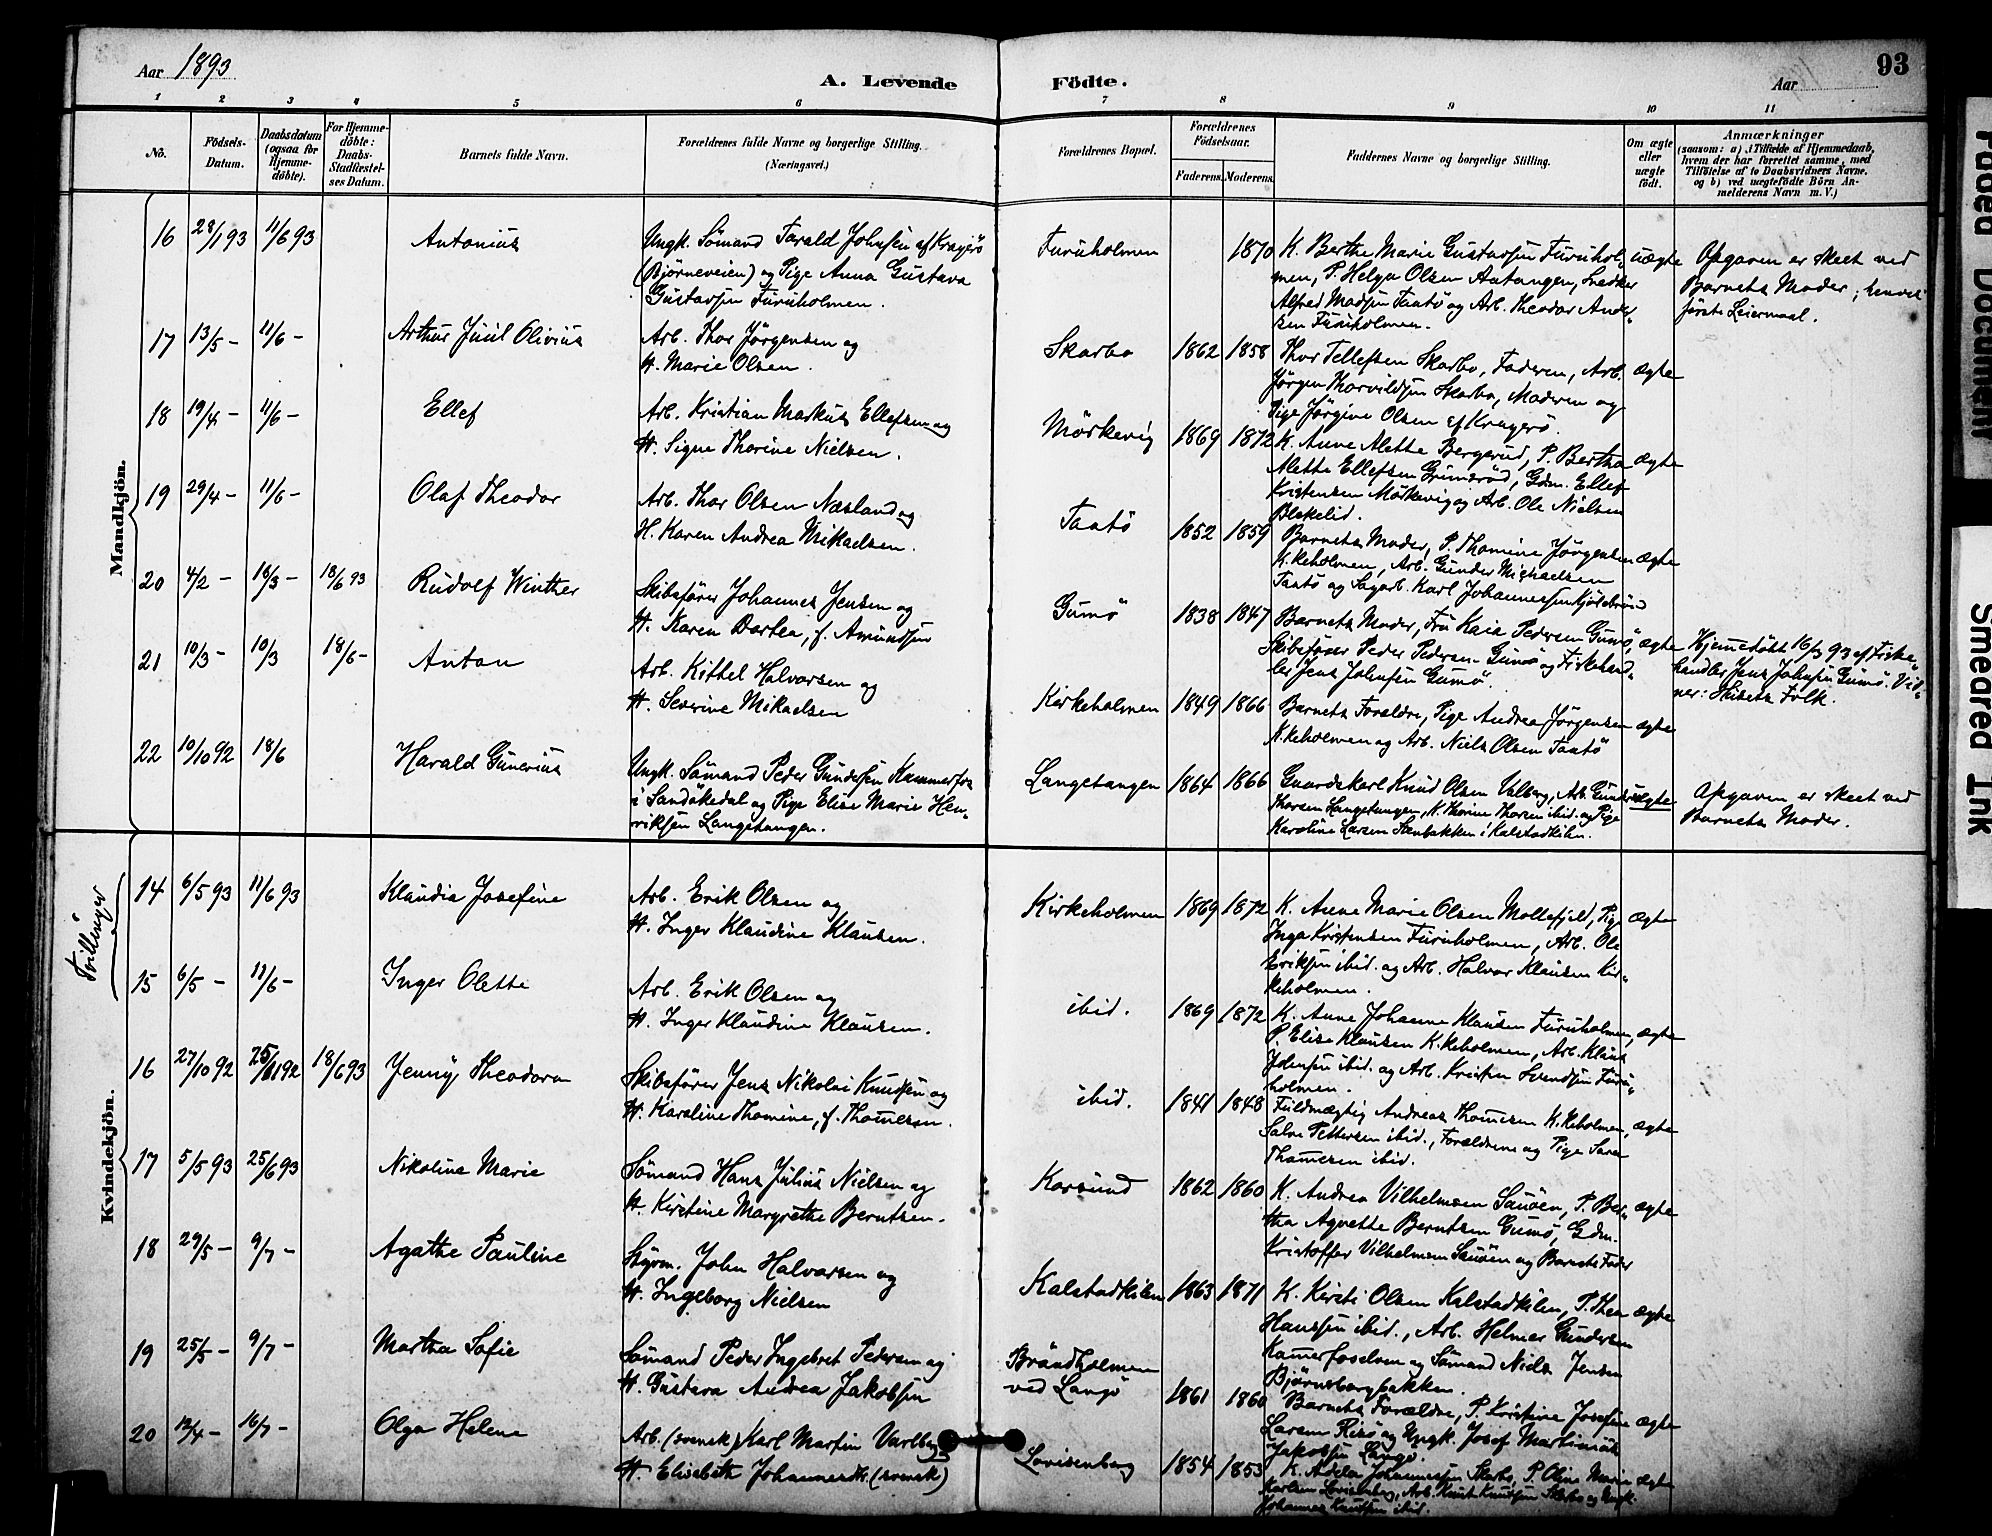 Aar 1893
A. Levende Födte.
Aar
93
1 2 3 4 5 6 7 8 9 10 11
No. Födsels-Datum. Daabsdatum (ogsaa for Hjemmedöbte). For Hjemmedöbte: Daabs-Stadfæstelses Datum. Barnets fulde Navn. Forældrenes fulde Navne og borgerlige Stilling. (Næringsvei.) Forældrenes Bopæl. Forældrenes Födselsaar. Faderens. Moderens. Faddernes Navne og borgerlige Stilling. Om ægte eller uægte födt. Anmærkninger (saasom: a) i Tilfælde af Hjemmedaab, hvem der har forrettet samme, med Tilföielse af to Daabsvidners Navne, og b) ved uægtefödte Börn Anmelderens Navn m. V.)
Mandkjön.
16 28/1 93 11/6 93 Antonius
Ungk. Sömand Tarald Johnsen af Kragerö
(Bjørneveien) og Pige Anna Gustava
Gustavsen Furuholmen.
Furuholmen 1870
K. Berthe Marie Gustavsen Furuhol-
men, P. Helga Olsen Aatangen, Snedker
Alfred Madsen Taatö og Arb. Theodor Ander-
sen Furuholmen.
uægte
Opgaven er skeet ved
Barnets Moder; hendes
første Leiermaal.
17 13/5 – 11/6 – Arthur Juul Olivius
Arb. Thor Jørgensen og
H. Marie Olsen.
Skarbo 1862 1858
Thor Tellefsen Skarbo, Faderen, Arb.
Jørgen Thorvildsen Skarbo, Moderen og
Pige Jørgine Olsen af Kragerö.
ægte
18 19/4 – 11/6 – Ellef
Arb. Kristian Markus Ellefsen og
H. Signe Thorine Nielsen.
Mörkevig 1869 1872
K. Anne Alette Bergerud, P. Bertha
Alette Ellefsen Grimsröd, Gdm. Ellef
Kristensen Mörkevig og Arb. Ole Nielsen
Blekelid.
ægte
19 29/4 – 11/6 – Olaf Theodor
Arb. Thor Olsen Næsland og
H. Karen Andrea Mikaelsen.
Taatö 1852 1859
Barnets Moder, P. Thomine Jørgensen
K.keholmen, Arb. Gunder Michaelsen
Taatö og Sagarb. Karl Johannessen
ægte
20 4/2 – 18/3 – 18/6 93 Rudolf Winther
Skibsfører Johannes Jensen og
H. Karen Dortea, f. Amundsen
Gumö 1838 1847
Barnets Moder, Fru Kaia Pedersen Gumö,
Skibsfører Peder Pedersen Gumö og Fiskehand-
ler Jens Johnsen Gumö.
ægte
Hjemmedöbt 16/3 93 af Fiske-
handler Jens Johnsen Gumö. Vid-
ner: Husets Folk.
21 10/3 – 10/3 18/6 – Anton
Arb. Kittel Halvorsen og
H. Severine Mikaelsen
Kirkeholmen 1849 1866
Barnets Forældre, Pige Andrea Jørgensen
K.keholmen og Arb. Niels Olsen Taatö
ægte
22 10/10 92 18/6 Harald Gunerius
Ungk. Sömand Peder Gundersen Kammerfos
i Sandökedal og Pige Elise Marie Hen-
riksen Langetangen.
Langetangen 1864 1866
Gaardskarl Knud Olsen Valberg, Arb. Gunder
Thorsen Langetangen, K. Thorine Thorsen ibid. og Pige
Karoline Larsen Stenbakken i Kalstadkilen.
uægte
Opgaven er skeet ved
Barnets Moder.
Kvindekjön.
Tvillinger
14 6/5 93 11/6 93 Klaudia Josefine
Arb. Erik Olsen og
H. Inger Klaudine Klausen.
Kirkeholmen 1869 1872
K. Anne Marie Olsen Mollefjeld, Pige
Inga Kristensen Furuholmen, Arb. Ole
Eriksen ibid. og Arb. Halvor Klausen Kir-
keholmen.
ægte
15 6/5 – 11/6 – Inger Olette
Arb. Erik Olsen og
H. Inger Klaudine Klausen.
ibid. 1869 1872
K. Anne Johanne Klausen Furuholmen,
P. Elise Klausen K.keholmen, Arb. Klaus
Johnsen ibid. og Arb. Kristen Svendsen Furu-
holmen.
ægte
16 27/10 92 18/6 93 Jenny Theodora
Skibsfører Jens Nikolai Knudsen og
H. Karoline Thomine, f. Thomesen.
ibid. 1841 1848
Fuldmægtig Andreas Thomesen K.keholmen,
Salve Pettersen ibid., Forældrene og Pige Sara
Thomesen ibid.
ægte
17 5/5 93 25/6 93 Nikoline Marie
Sömand Hans Julius Nielsen og
H. Kirstine Margrethe Berntsen.
Korsund 1862 1860
K. Andrea Vilhelmsen Sauöen, P. Ber-
tha Agnette Berntsen Gumö, Gdm.
Kristoffer Vilhelmsen Sauöen og Barnets Fader
ægte
18 29/5 – 9/7 – Agathe Pauline
Styrm. John Halvorsen og
H. Ingeborg Nielsen
Kalstadkilen 1863 1871
K. Kirsti Olsen Kalstadkilen, P. Thea
Hanssen ibid., Arb. Helmer Gundersen
Kamerfoselven og Sömand Niels Jensen
Bjørnsborgbakken.
ægte
19 25/5 – 9/7 – Martha Sofie
Sömand Peder Ingebret Pedersen og
H. Gustava Andrea Jakobsen
Brändholmen
ved Langö
1861 1860
Barnets Forældre, P. Kristine Josefine
Larsen Risö og Ungk. Josef Martinius
Jakobsen Langö.
ægte
20 12/4 – 16/7 – Olga Helene
Arb. (svensk) Karl Martin Varlberg
H. Elisabeth Johannesdtr. (svensk)
Lovisenberg 1854 1853
K. Adela Johannessen Skarbo, P. Oline Marie
Karlsen Lovisenberg, Arb. Knut Knutsen Skarbo og Ungk.
Johannes Knutsen ibid.
ægte
Faded Document
Smeared Ink